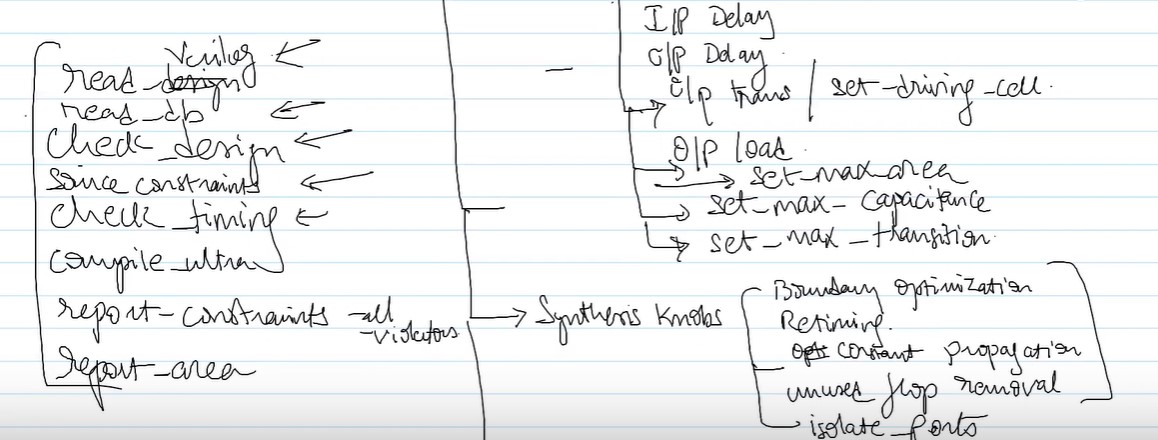 read_verilog
read_db
check_design
source constraints
check_timing
compile_ultra
report-constraints -all
-violators
report_area
I/P Delay
O/P Delay
I/p trans / set-driving-cell.
O/P load
set-max-area
set-max-capacitance
set-max-transition
Synthesis Knobs
Boundary optimization
Retiming.
constant propagation
unused flop removal
isolate_ports